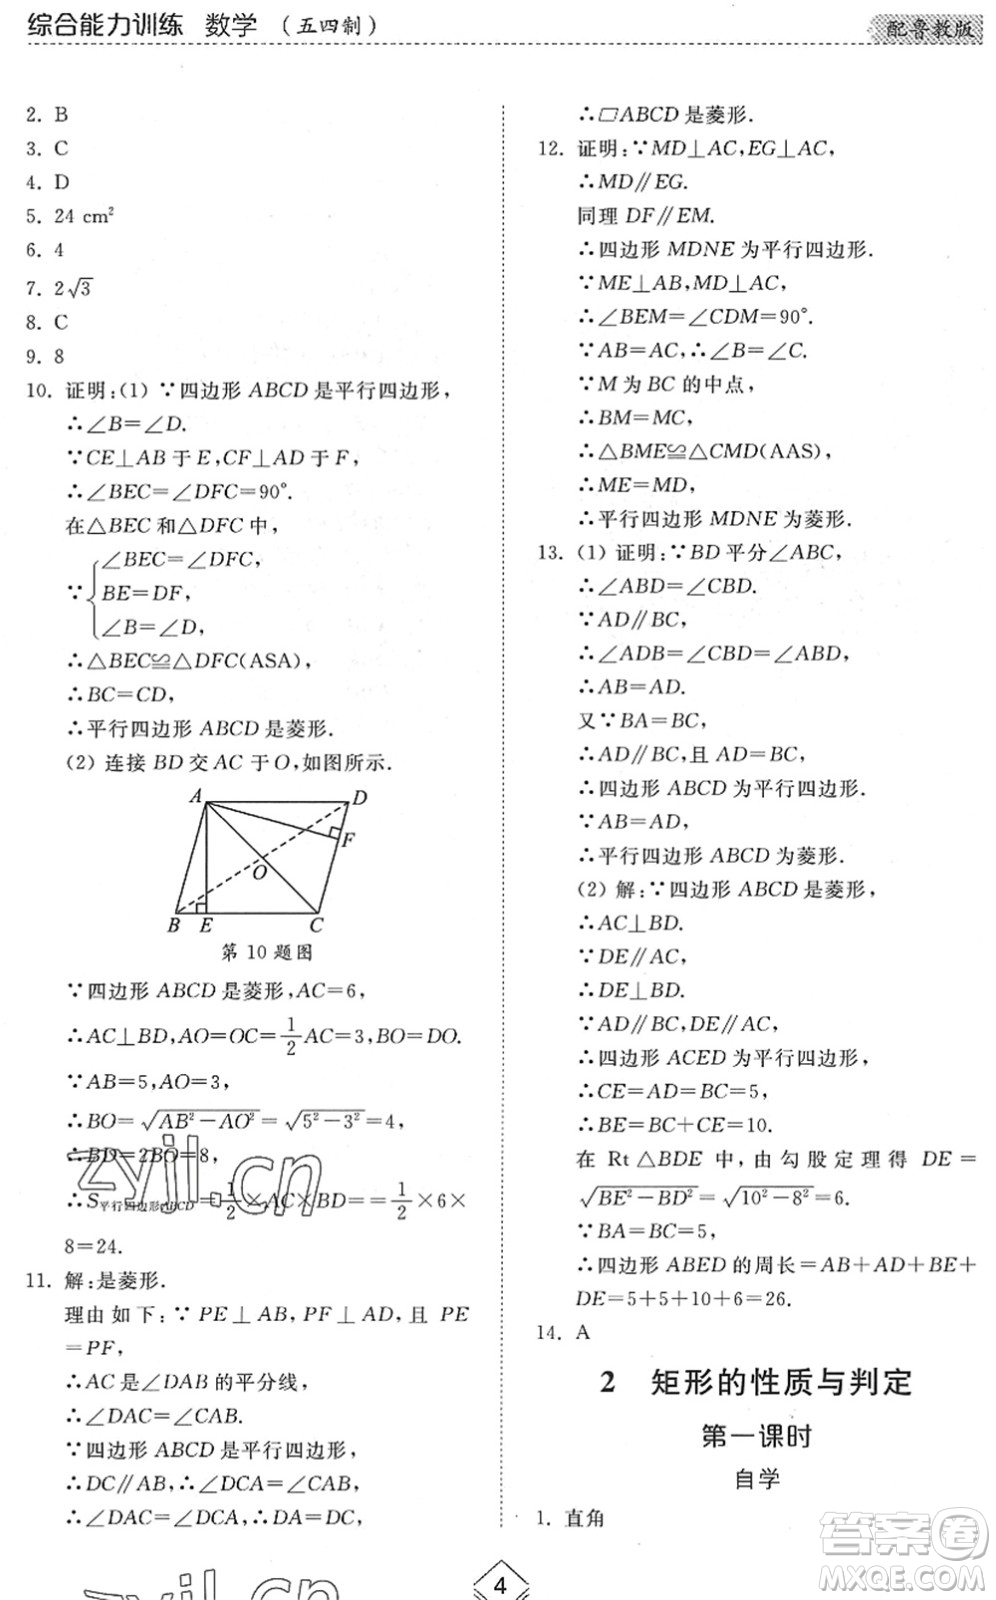 综合能力训练 数学 (五四制)
配鲁教版
2. B
3. C
4. D
5. 24 cm²
6. 4
7. 2√3
8. C
9. 8
10. 证明:(1) ∵四边形 ABCD 是平行四边形,
∴∠B=∠D.
∵CE⊥AB 于 E,CF⊥AD 于 F,
∴∠BEC=∠DFC=90°.
在△BEC 和△DFC 中,
∠BEC=∠DFC,
∵{BE=DF,
∠B=∠D,
∴△BEC≌△DFC(ASA),
∴BC=CD,
∴平行四边形 ABCD 是菱形.
(2) 连接 BD 交 AC 于 O,如图所示.
A
D
F
O
B
E
C
第 10 题图
∵四边形 ABCD 是菱形,AC=6,
∴AC⊥BD,AO=OC=1/2 AC=3,BO=DO.
∵AB=5,AO=3,
∴BO=√(AB²-AO²)=√(5²-3²)=4,
∴BD=2BO=8,
∴S平行四边形ABCD=1/2×AC×BD==1/2×6×
8=24.
11. 解:是菱形.
理由如下:∵PE⊥AB,PF⊥AD,且 PE
=PF,
∴AC 是∠DAB 的平分线,
∴∠DAC=∠CAB.
∵四边形 ABCD 是平行四边形,
∴DC∥AB,∴∠DCA=∠CAB,
∴∠DAC=∠DCA,∴DA=DC,
∴▱ABCD 是菱形.
12. 证明:∵MD⊥AC,EG⊥AC,
∴MD∥EG.
同理 DF∥EM.
∴四边形 MDNE 为平行四边形.
∵ME⊥AB,MD⊥AC,
∴∠BEM=∠CDM=90°.
∵AB=AC,∴∠B=∠C.
∵M 为 BC 的中点,
∴BM=MC,
∴△BME≌△CMD(AAS),
∴ME=MD,
∴平行四边形 MDNE 为菱形.
13. (1) 证明:∵BD 平分∠ABC,
∴∠ABD=∠CBD.
∵AD∥BC,
∴∠ADB=∠CBD=∠ABD,
∴AB=AD.
又∵BA=BC,
∴AD∥BC,且 AD=BC,
∴四边形 ABCD 为平行四边形.
∵AB=AD,
∴平行四边形 ABCD 为菱形.
(2) 解:∵四边形 ABCD 是菱形,
∴AC⊥BD.
∵DE∥AC,
∴DE⊥BD.
∵AD∥BC,DE∥AC,
∴四边形 ACED 为平行四边形,
∴CE=AD=BC=5,
∴BE=BC+CE=10.
在 Rt△BDE 中,由勾股定理得 DE=
√(BE²-BD²)=√(10²-8²)=6.
∵BA=BC=5,
∴四边形 ABED 的周长=AB+AD+BE+
DE=5+5+10+6=26.
14. A
2 矩形的性质与判定
第一课时
自学
1. 直角
4
zyjl.cn
zyjl.cn
答案圈
MXQE.COM